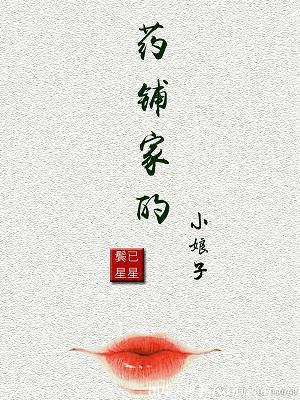 药铺家的
小娘子
鬓已
星星